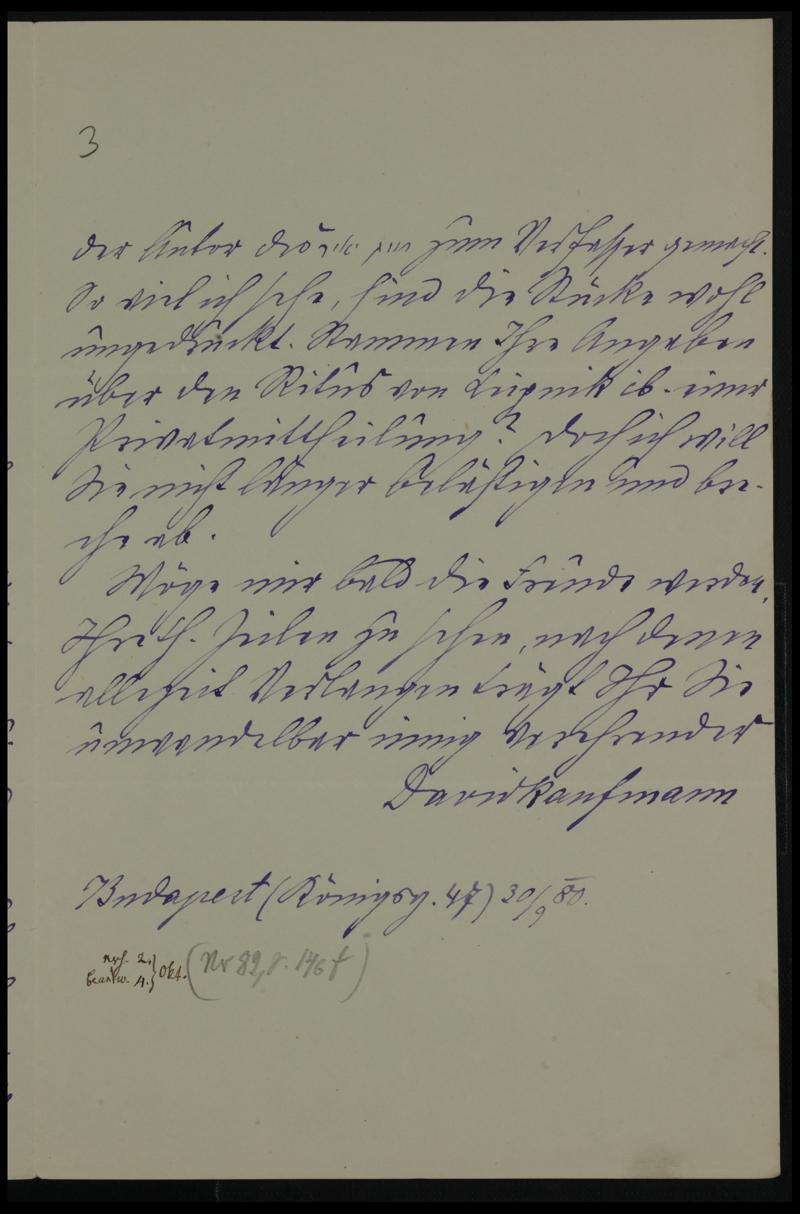 3
der Autor des zum Verfasser gemacht.
So viel ich sehe, sind die Stücke wohl
ungedruckt. Stammen Ihre Angaben
über den Ritus von Leipnik ib. einer
Privatmittheilung? Doch ich will
Sie nicht länger belästigen und bre-
che ab.
Möge mir bald die Freude werden,
Ihre Zeilen zu sehen, nach denen
allezeit Verlangen trägt Ihr Sie
unwandelbar innig verehrender
David Kaufmann
Budapest (Königsg. 47) 30/9 80.
2.
beantw. 4. } Okt. (Nr 82, S. 146 f)